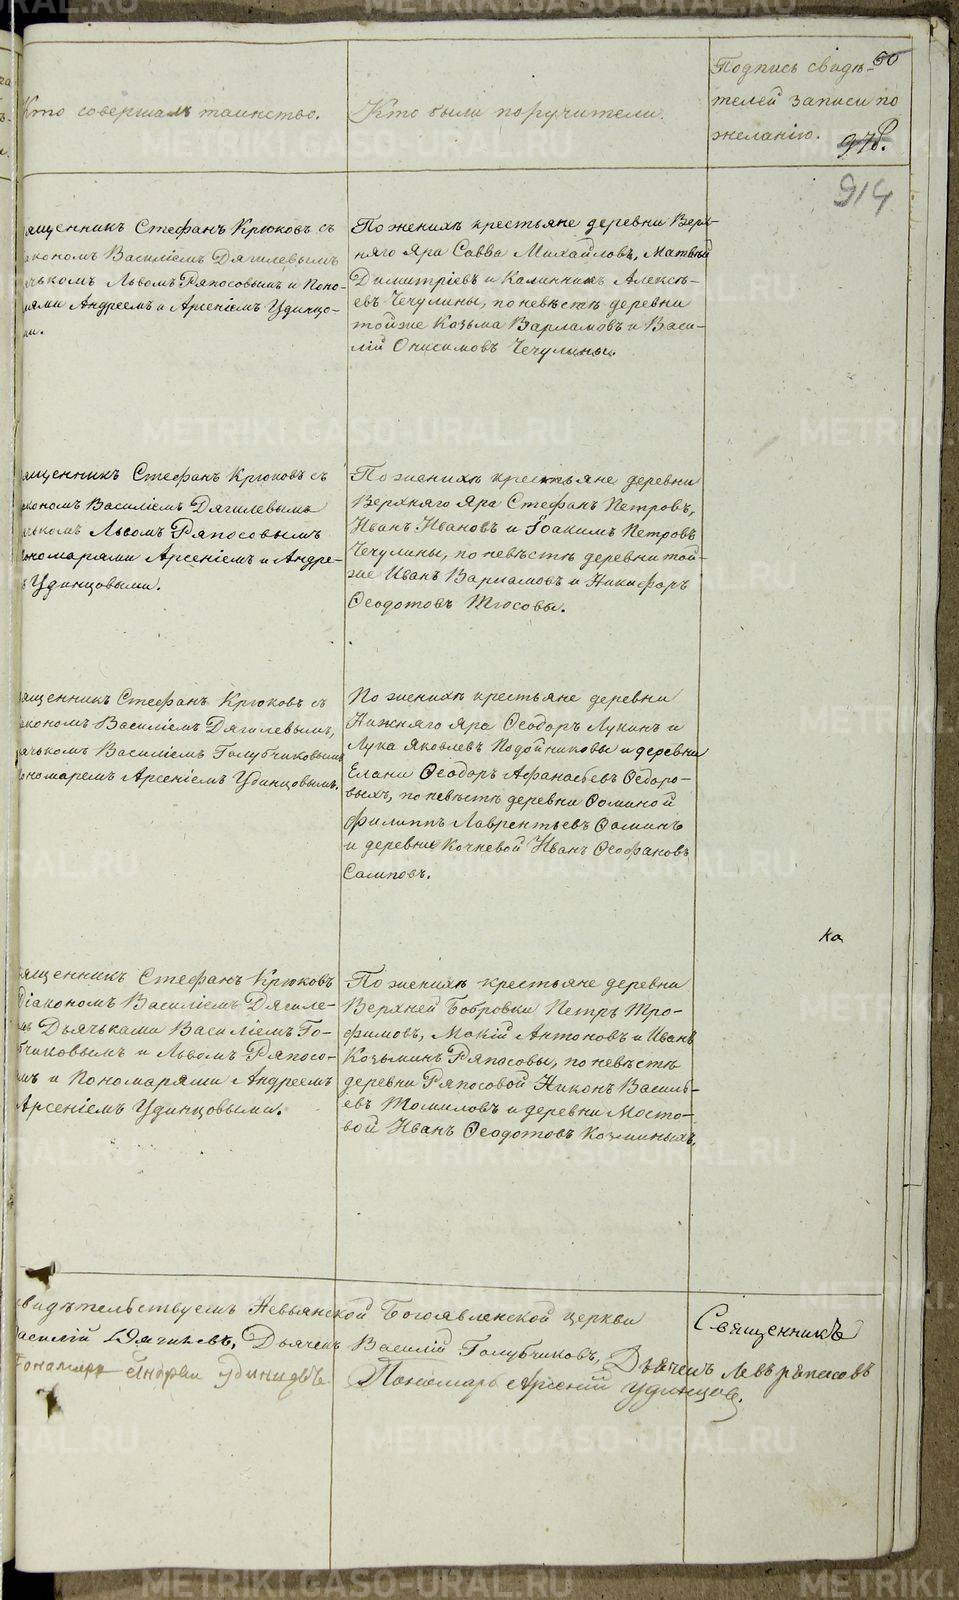 Кто совершалъ таинство.
Кто были поручители.
Подпись свидѣ-
телей записи по
желанію.
60
914
ященникъ Стефанъ Крюковъ съ
іакономъ Василіемъ Дягилевымъ
ячькомъ Львомъ Ряпосовымъ и Поно-
рями Андреемъ и Арсеніемъ Удинцо-
ми.
По женихѣ крестьяне деревни Верх-
няго Яра Савва Михайловъ, Матвѣй
Димитріевъ и Калинникъ Алексѣ-
евъ Чечулины, по невѣстѣ деревни
тойже Козьма Варламовъ и Васи-
лій Онисимовъ Чечулины.
ященникъ Стефанъ Крюковъ съ
іакономъ Василіемъ Дягилевымъ
ячькомъ Львомъ Ряпосовымъ
ономарями Арсеніемъ и Андре-
ъ Удинцовыми.
По женихѣ крестьяне деревни
Верхняго Яра Стефанъ Петровъ,
Иванъ Ивановъ и Іоакимъ Петровъ
Чечулины, по невѣстѣ деревни той-
же Иванъ Варламовъ и Никифоръ
Ѳеодотовъ Тюсовы.
ященникъ Стефанъ Крюковъ съ
іакономъ Василіемъ Дягилевымъ,
ячькомъ Василіемъ Голубчиковымъ
ономаремъ Арсеніемъ Удинцовымъ.
По женихѣ крестьяне деревни
Нижняго Яра Ѳеодоръ Лукинъ и
Лука Яковлевъ Подойниковы и деревни
Елани Ѳеодоръ Аѳанасьевъ Ѳедоро-
выхъ, по невѣстѣ деревни Ѳоминой
Филиппъ Лаврентьевъ Ѳоминъ
и деревни Кочневой Иванъ Ѳеофановъ
Салиповъ.
ка
ященникъ Стефанъ Крюковъ
Діакономъ Василіемъ Дягиле-
мъ Дьячьками Василіемъ Го-
бчиковымъ и Львомъ Ряпосо-
мъ и Пономарями Андреемъ
Арсеніемъ Удинцовыми.
По женихѣ крестьяне деревни
Верхней Бобровки Петръ Тро-
фимовъ, Мокій Антоновъ и Иванъ
Козьминъ Ряпосовы, по невѣстѣ
деревни Ряпосовой Никонъ Василь-
евъ Томиловъ и деревни Мосто-
вой Иванъ Ѳеодотовъ Козминыхъ.
видѣтельствуемъ Невьянской Богоявленской церкви Священникъ
асилій Дягилевъ, Дьячекъ Василій Голубчиковъ, Дьячекъ Левъ Ряпасовъ
Пономарь Андрей Удинцовъ Пономарь Арсеній Удинцовъ.
METRIKI.GASO-URAL.RU